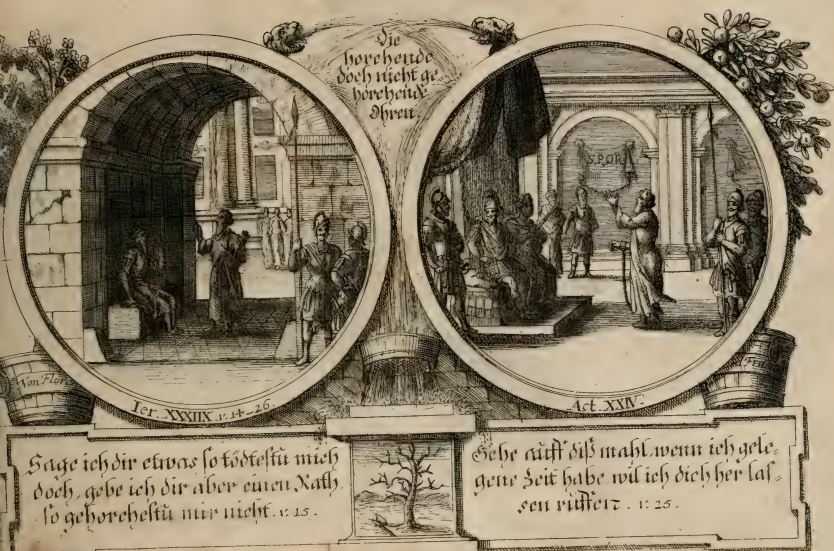 Die
horchende
doch nicht ge
horchende
Ohren.
S.P.Q.R
Von
Ier. XXXIIX. v. 14-26.
Act. XXIV.
Sage ich dir etwas so tödtestu mich
doch, gebe ich dir aber einen Rath,
so gehorchestu mir nicht. v. 15.
Gehe auff diß mahl, wenn ich gele-
gene Zeit habe, wil ich dich her las-
sen ruffen. v. 25.